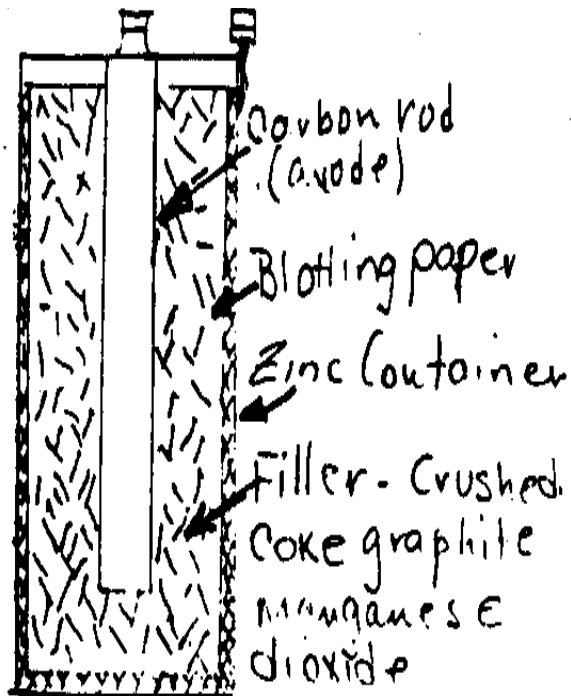 Carbon rod
(anode)
Blotting paper
Zinc Container
Filler - Crushed.
Coke graphite
manganese
dioxide